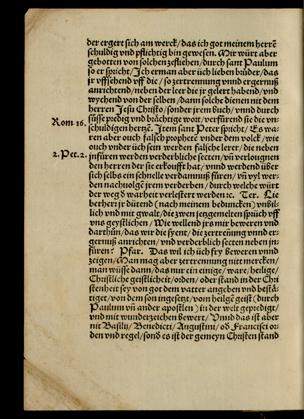 der ergert sich am werck/das ich got meinem herrē
schuldig vnd pflichtig bin gewesen. Mir würt aber
gebotten von solchen zeflichen/durch sant Paulum
so er spricht/Ich erman aber üch lieben brüder/das
jr vffsehend vff die/so zertrennung vnnd ergernuß
anrichtend/neben der leer die jr gelert habend/vnd
wychend von der selben/dann solche dienen nit dem
herren Jesu Christo/sonder jrem buch/vnnd durch
süsse predig vnd brächtige wort/verfürend sie die vn
schuldigen hertzē. Item sant Peter spricht/Es wa
ren aber ouch falsch prophetē vnder dem volck/wie
ouch vnder üch sein werden falsche lerer/die neben
jnfüren werden verderbliche secten/vñ verlougnen
den herren der sie erkoufft hat/vnnd werdend über
sich selbs ein schnelle verdamnuß füren/vñ vyl wer-
den nachuolgē jrem verderben/durch welche würt
der weg d̕ warheit verlestert werdē ꝛc. Ter. Lie
ber herr jr dütend (nach meinem beduncken) vnbil-
lich vnd mit gwalt/die zwen jetzgemelten sprüch vff
vns geystlichen/Wie wellend jrs mir beweren vnd
darthůn/das wir die syent/die zertrennung vnnd er-
gernuß anrichten/vnd verderblich secten neben jn-
füren? Pfar. Das wil ich üch fry beweren vnnd
zeigen/Man mag aber zertrennung nit mercken/
man müsse dann/das nur ein einige/ware/heilige/
Christliche geistlicheit/orden/oder stand in der Chri
stenheit sey von got dem vatter angeben vnd bestä-
tiget/von dem son ingesetzt/vom heilgē geist (durch
Paulum vñ ander apostlen) in der welt gepredigt/
vnd mit wunderzeichen bewert/Vnnd das ist aber
nit Basilij/Benedicti/Augustini/od̕ Francisci or-
den vnd regel/sonđ es ist der gemeyn Christen stand
Rom 16.
2. Pet. 2.